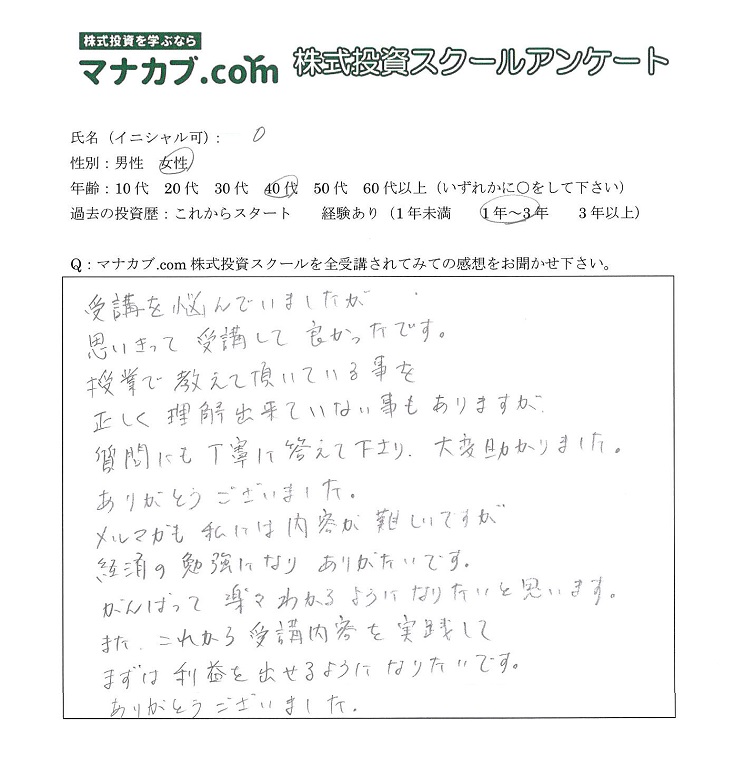 株式投資を学ぶなら
マナカブ.com 株式投資スクールアンケート
氏名（イニシャル可）： O
性別：男性　女性
年齢：10代　20代　30代　40代　50代　60代以上（いずれかに○をして下さい）
過去の投資歴：これからスタート　経験あり（1年未満　1年～3年　3年以上）
Q：マナカブ.com 株式投資スクールを全受講されてみての感想をお聞かせ下さい。
受講を悩んでいましたが
思いきって 受講して 良かったです。
授業で 教えて頂いている事を
正しく 理解出来ていない事もありますが、
質問にも 丁寧に 答えて下さり、大変助かりました。
ありがとうございました。
メルマガも 私には 内容が 難しいですが
経済の 勉強になり ありがたいです。
がんばって 楽々わかるようになりたいと思います。
また、これから 受講内容を 実践して
まずは 利益を出せるようになりたいです。
ありがとうございました。